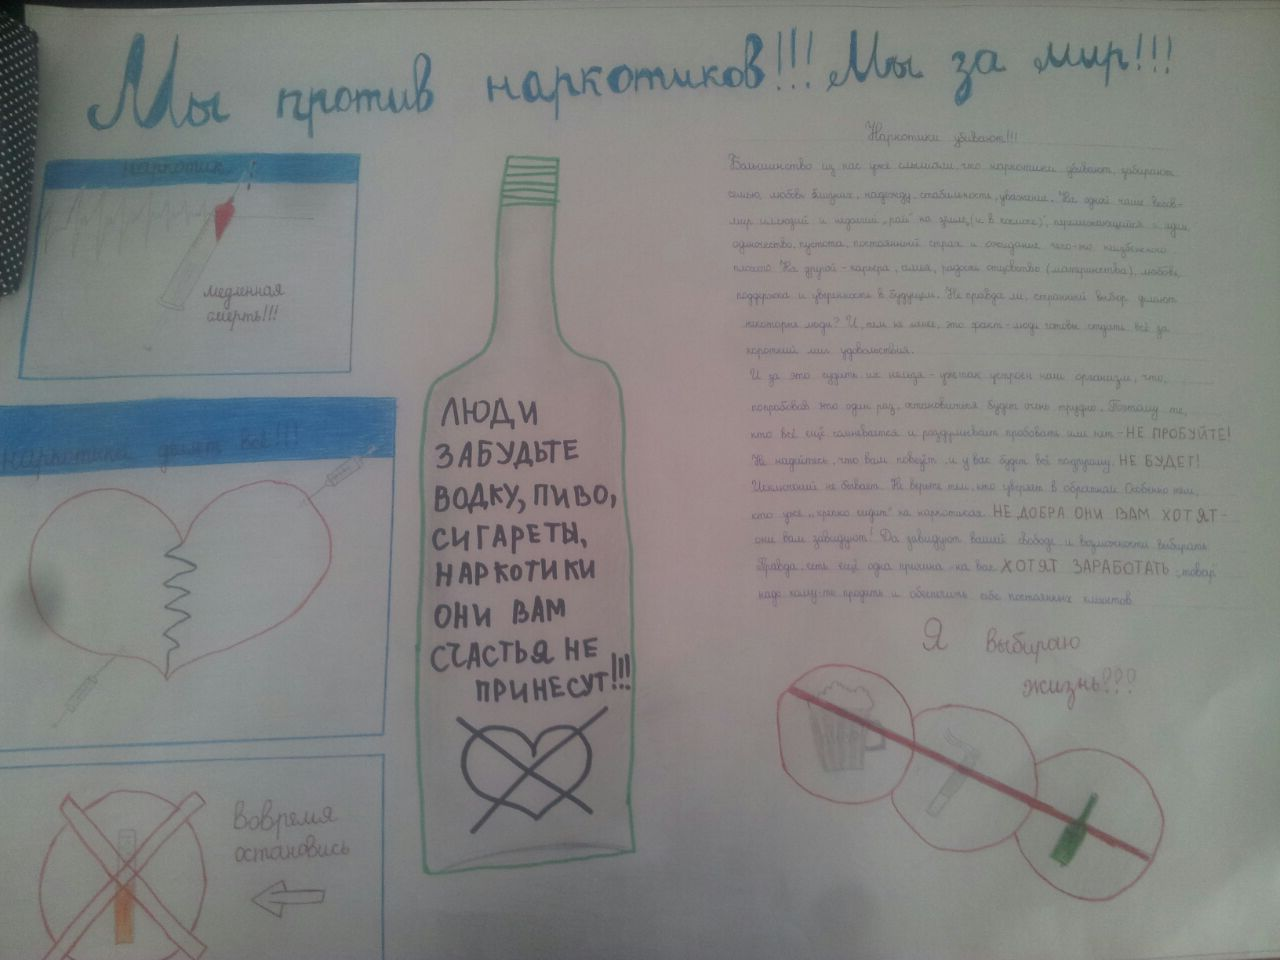 Мы против наркотиков!!! Мы за мир!!!
наркотик
медленная
смерть!!!
наркотики делят всё!!!
Вовремя
остановись
ЛЮДИ
ЗАБУДЬТЕ
ВОДКУ, ПИВО,
СИГАРЕТЫ,
НАРКОТИКИ
ОНИ ВАМ
СЧАСТЬЯ НЕ
ПРИНЕСУТ!!!
Наркотики убивают!!!
Большинство из нас уже слышали, что наркотики убивают, забирают
семью, любовь близких, надежду, стабильность, уважение. На одной чаше весов-
мир иллюзий и недолгий „рай" на земле (и в космосе), перемежающийся с адом,
одиночество, пустота, постоянный страх и ожидание чего-то неизбежного
плохого. На другой - карьера, семья, радость отцовства (материнства), любовь,
поддержка и уверенность в будущем. Не правда ли, странный выбор делают
некоторые люди? И, тем не менее, это факт - люди готовы отдать всё за
короткий миг удовольствия.
И за это судить их нельзя - уж так устроен наш организм, что,
попробовав это один раз, остановиться будет очень трудно. Поэтому те,
кто всё ещё сомневается и раздумывает пробовать или нет - НЕ ПРОБУЙТЕ!
Не надейтесь, что вам повезёт, и у вас будет всё по-другому. НЕ БУДЕТ!
Исключений не бывает. Не верьте тем, кто уверяет в обратном. Особенно тем,
кто уже „крепко сидит" на наркотиках. НЕ ДОБРА ОНИ ВАМ ХОТЯТ -
они вам завидуют! Да завидуют вашей свободе и возможности выбирать.
Правда, есть ещё одна причина - на вас ХОТЯТ ЗАРАБОТАТЬ - товар
надо кому-то продать и обеспечить себе постоянных клиентов.
Я выбираю
жизнь!???